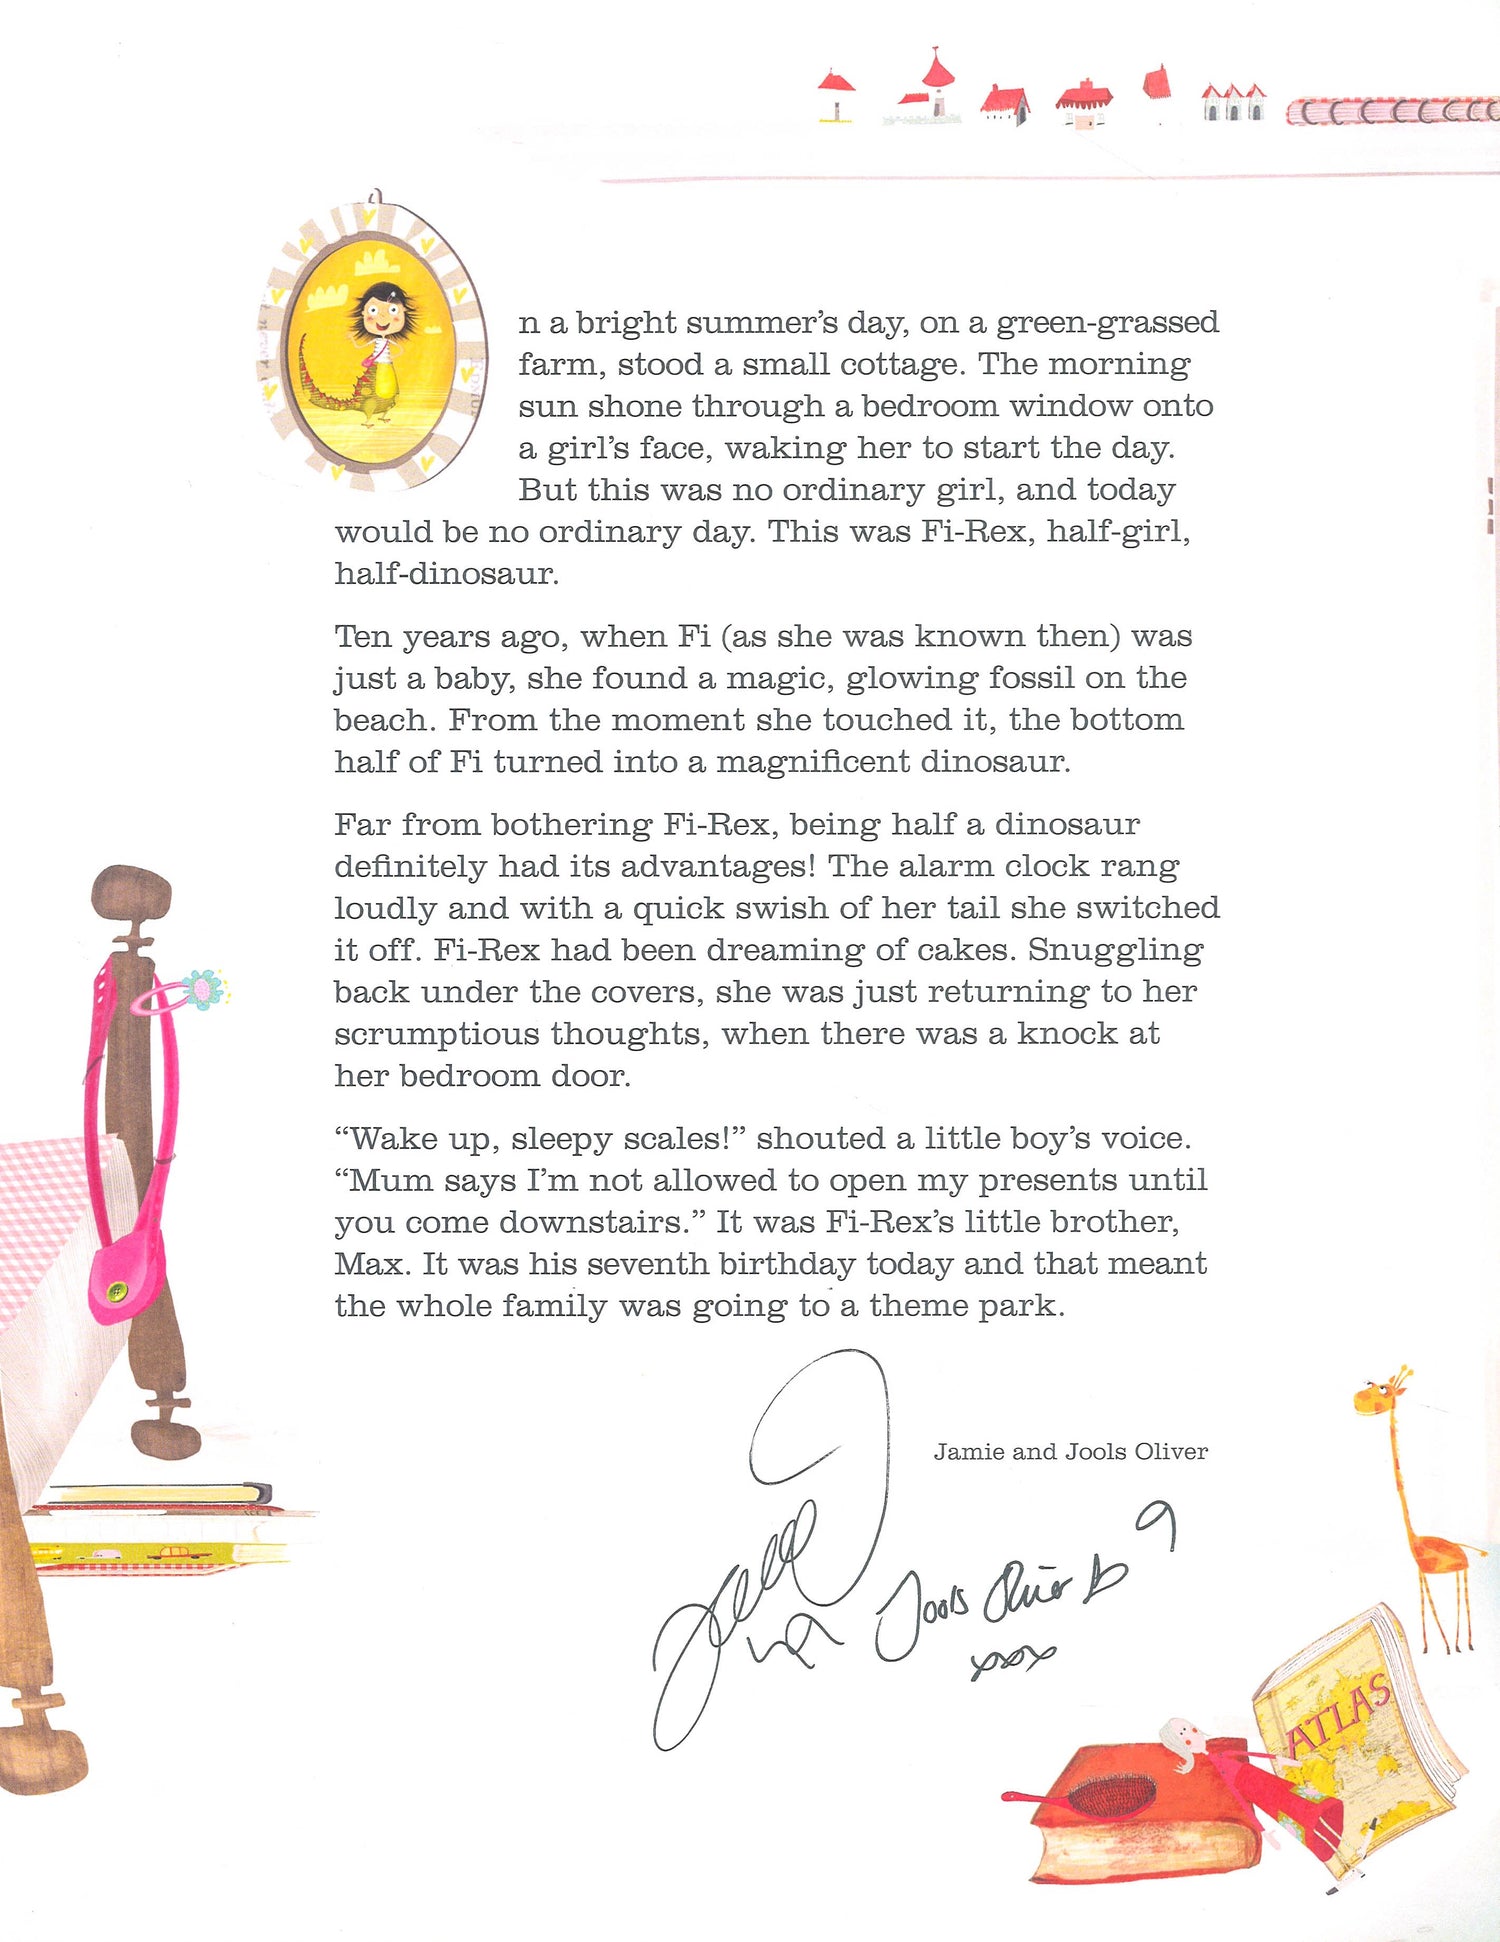 n a bright summer’s day, on a green-grassed
farm, stood a small cottage. The morning
sun shone through a bedroom window onto
a girl’s face, waking her to start the day.
But this was no ordinary girl, and today
would be no ordinary day. This was Fi-Rex, half-girl,
half-dinosaur.
Ten years ago, when Fi (as she was known then) was
just a baby, she found a magic, glowing fossil on the
beach. From the moment she touched it, the bottom
half of Fi turned into a magnificent dinosaur.
Far from bothering Fi-Rex, being half a dinosaur
definitely had its advantages! The alarm clock rang
loudly and with a quick swish of her tail she switched
it off. Fi-Rex had been dreaming of cakes. Snuggling
back under the covers, she was just returning to her
scrumptious thoughts, when there was a knock at
her bedroom door.
“Wake up, sleepy scales!” shouted a little boy’s voice.
“Mum says I’m not allowed to open my presents until
you come downstairs.” It was Fi-Rex’s little brother,
Max. It was his seventh birthday today and that meant
the whole family was going to a theme park.
Jamie and Jools Oliver
Jools Oliver
xxx
ATLAS